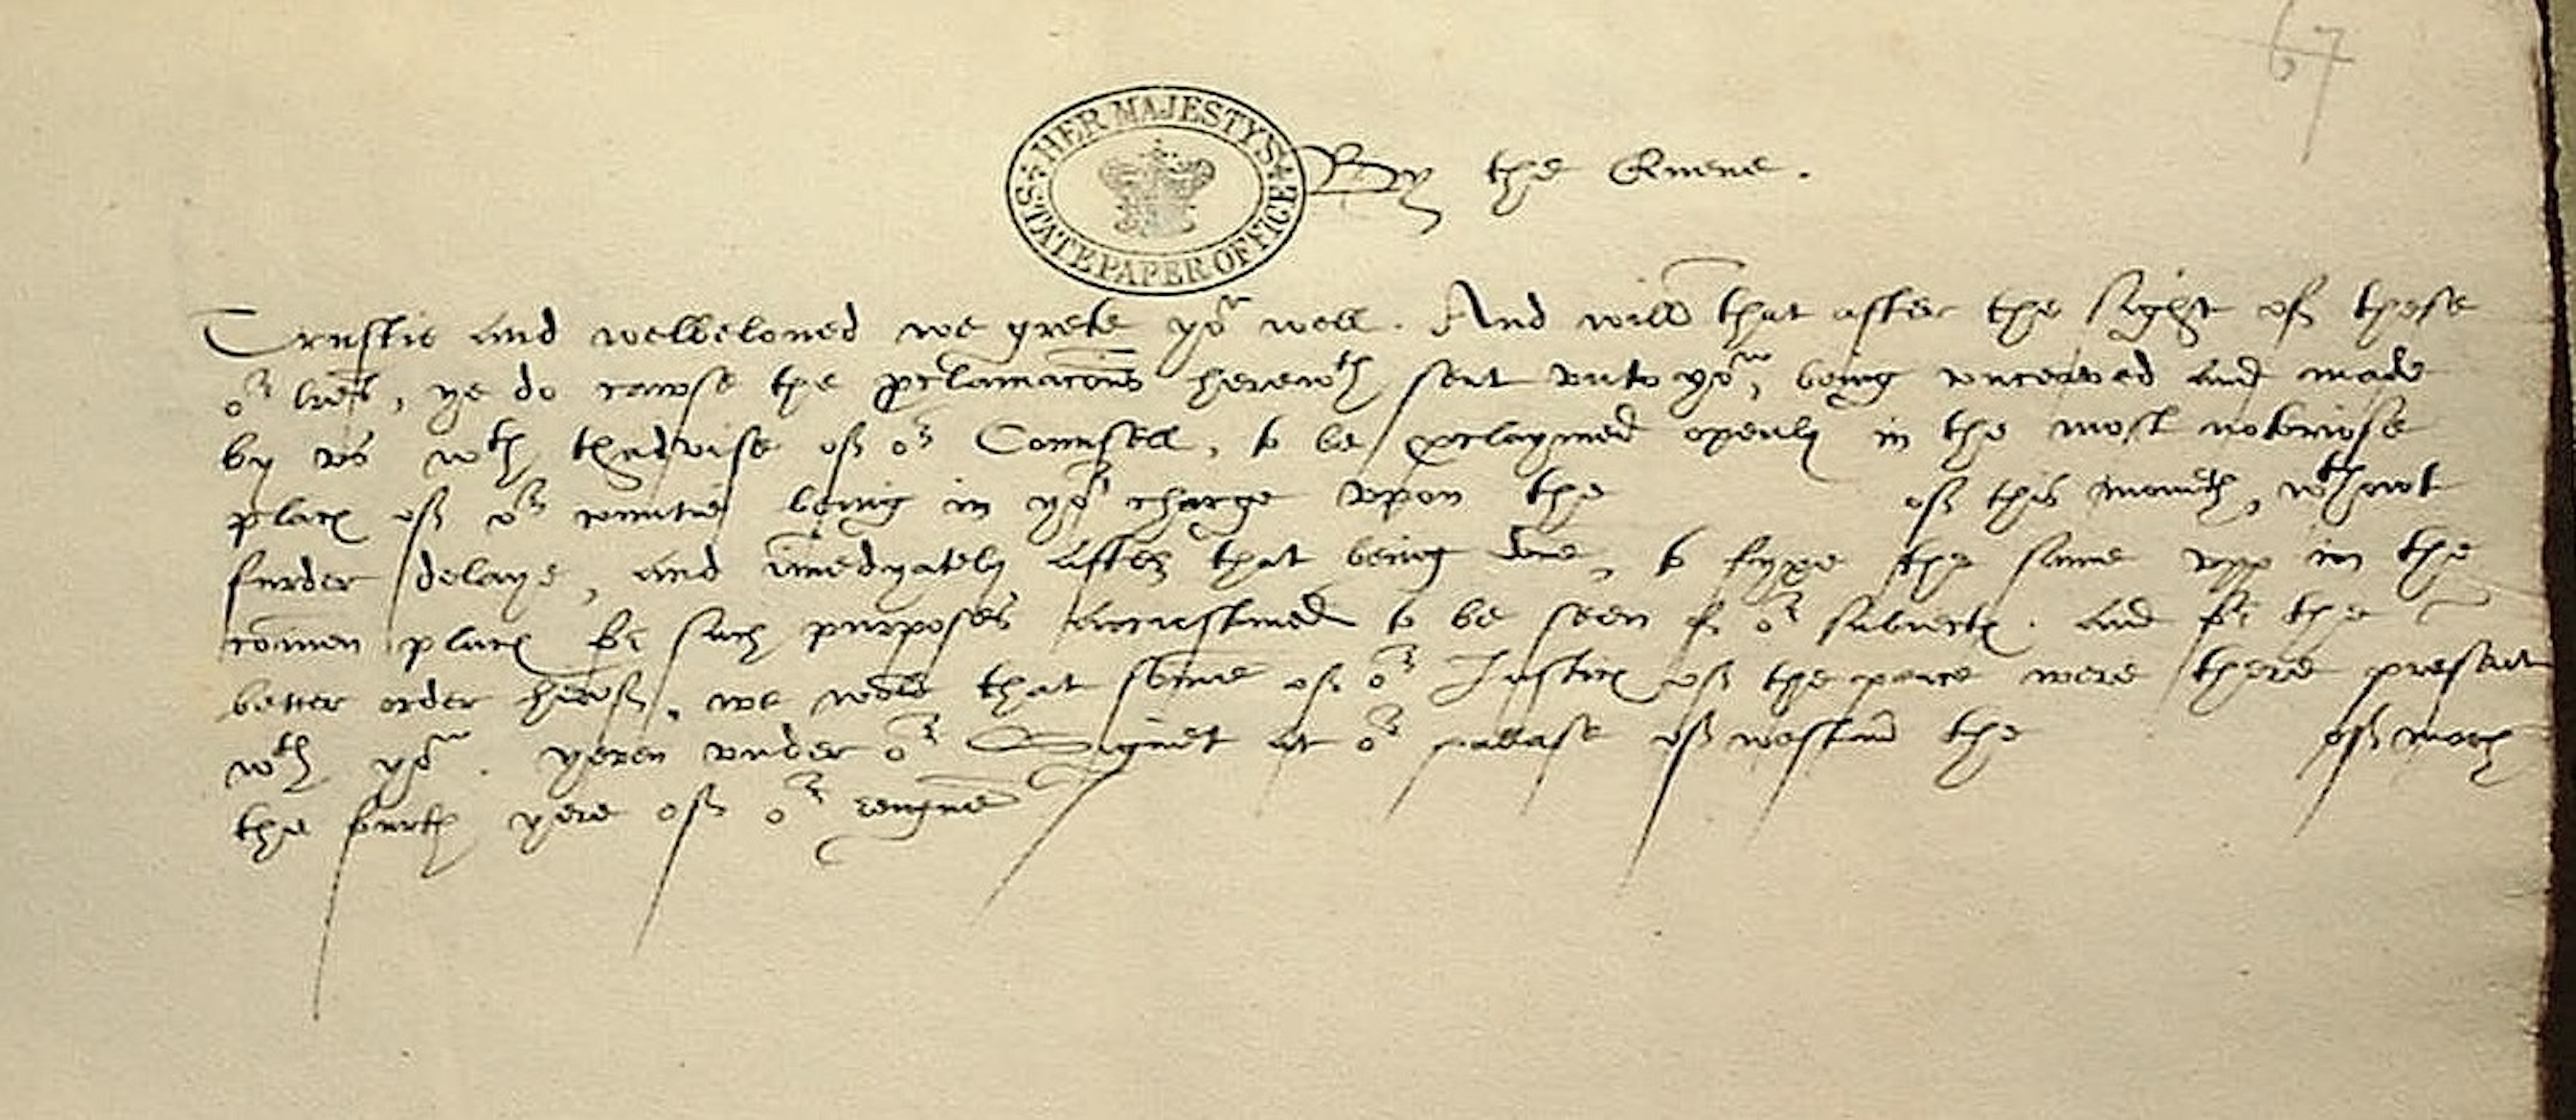 67
HER MAJESTY'S STATE PAPER OFFICE
By the Quene.
Trustie and welbeloued we grete yoᵘ well. And will that after the sight of these
oʳ lr̃es, ye do cawse the p̱clamac̃ons herewᵗʰ sent vnto yoᵘ, being conceaved and made
by vs wᵗʰ thadvise off oʳ Counsell, to be p̱claymed openly in the most notoriose
place off oʳ countie being in yoʳ charge vpon the off this moneth, wᵗʰowt
furder delaye, and im̃edyately after that being done, to fyxe the same vpp in the
com̃en place for such purposes accustumed to be seen of oʳ subiectes. And for the
better order heroff, we wold that some off oʳ Justices off the peace were there present
wᵗʰ yoᵘ. yeven vnder oʳ Signet at oʳ pallase off westm̃ the off march
the fourth yere off oʳ reigne